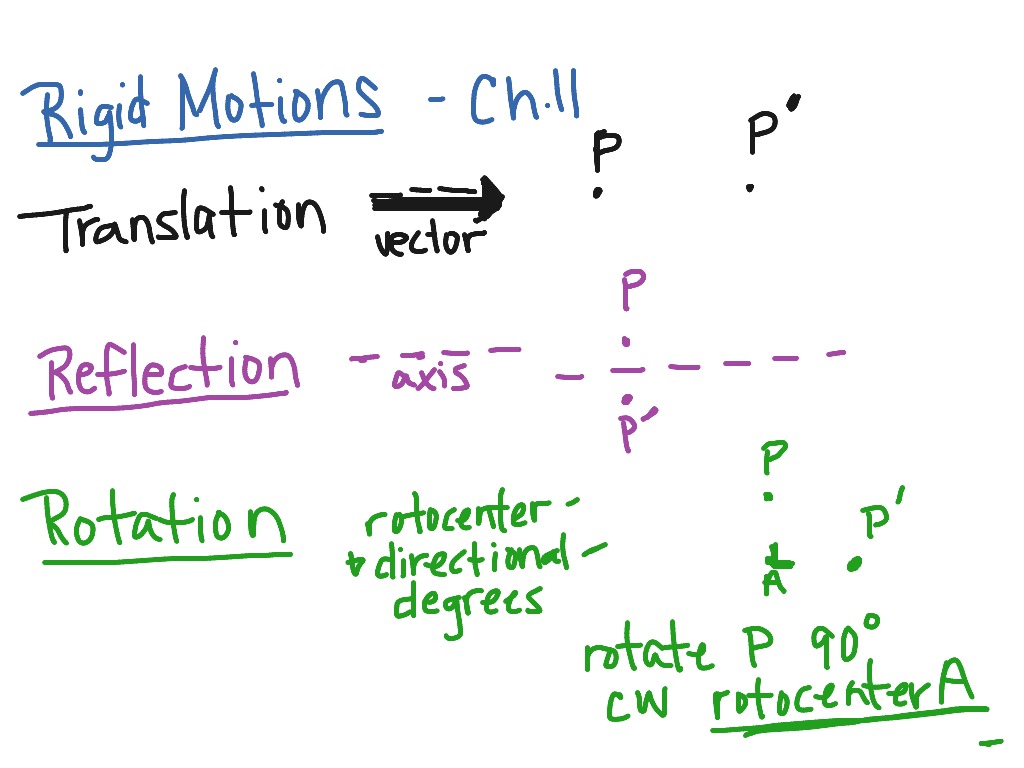 Rigid Motions - Ch.11
P P'
Translation
vector
P
Reflection
axis
P'
P
Rotation
rotocenter
P'
+ directional
A
degrees
rotate P 90°
cw rotocenter A